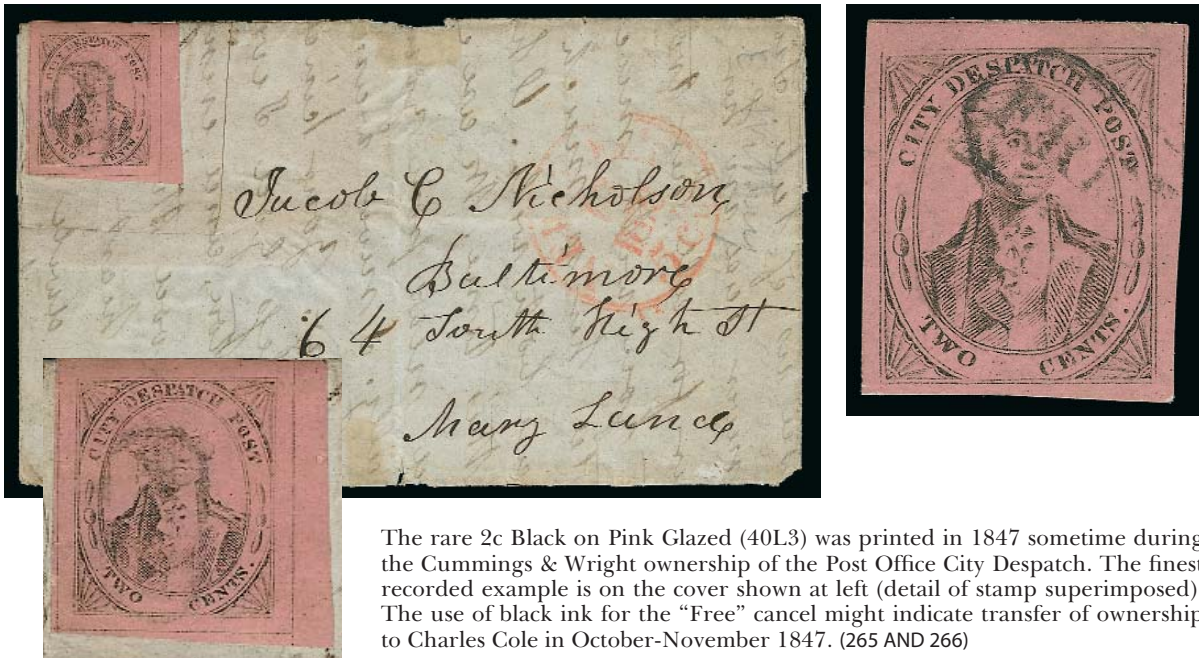 CITY DESPATCH POST
TWO CENTS.
Jacob C Nicholson
Baltimore
64 South High St
Mary Land
CITY DESPATCH POST
TWO CENTS.
CITY DESPATCH POST
TWO CENTS.
The rare 2c Black on Pink Glazed (40L3) was printed in 1847 sometime during
the Cummings & Wright ownership of the Post Office City Despatch. The finest
recorded example is on the cover shown at left (detail of stamp superimposed)
The use of black ink for the “Free” cancel might indicate transfer of ownership
to Charles Cole in October-November 1847. (265 AND 266)